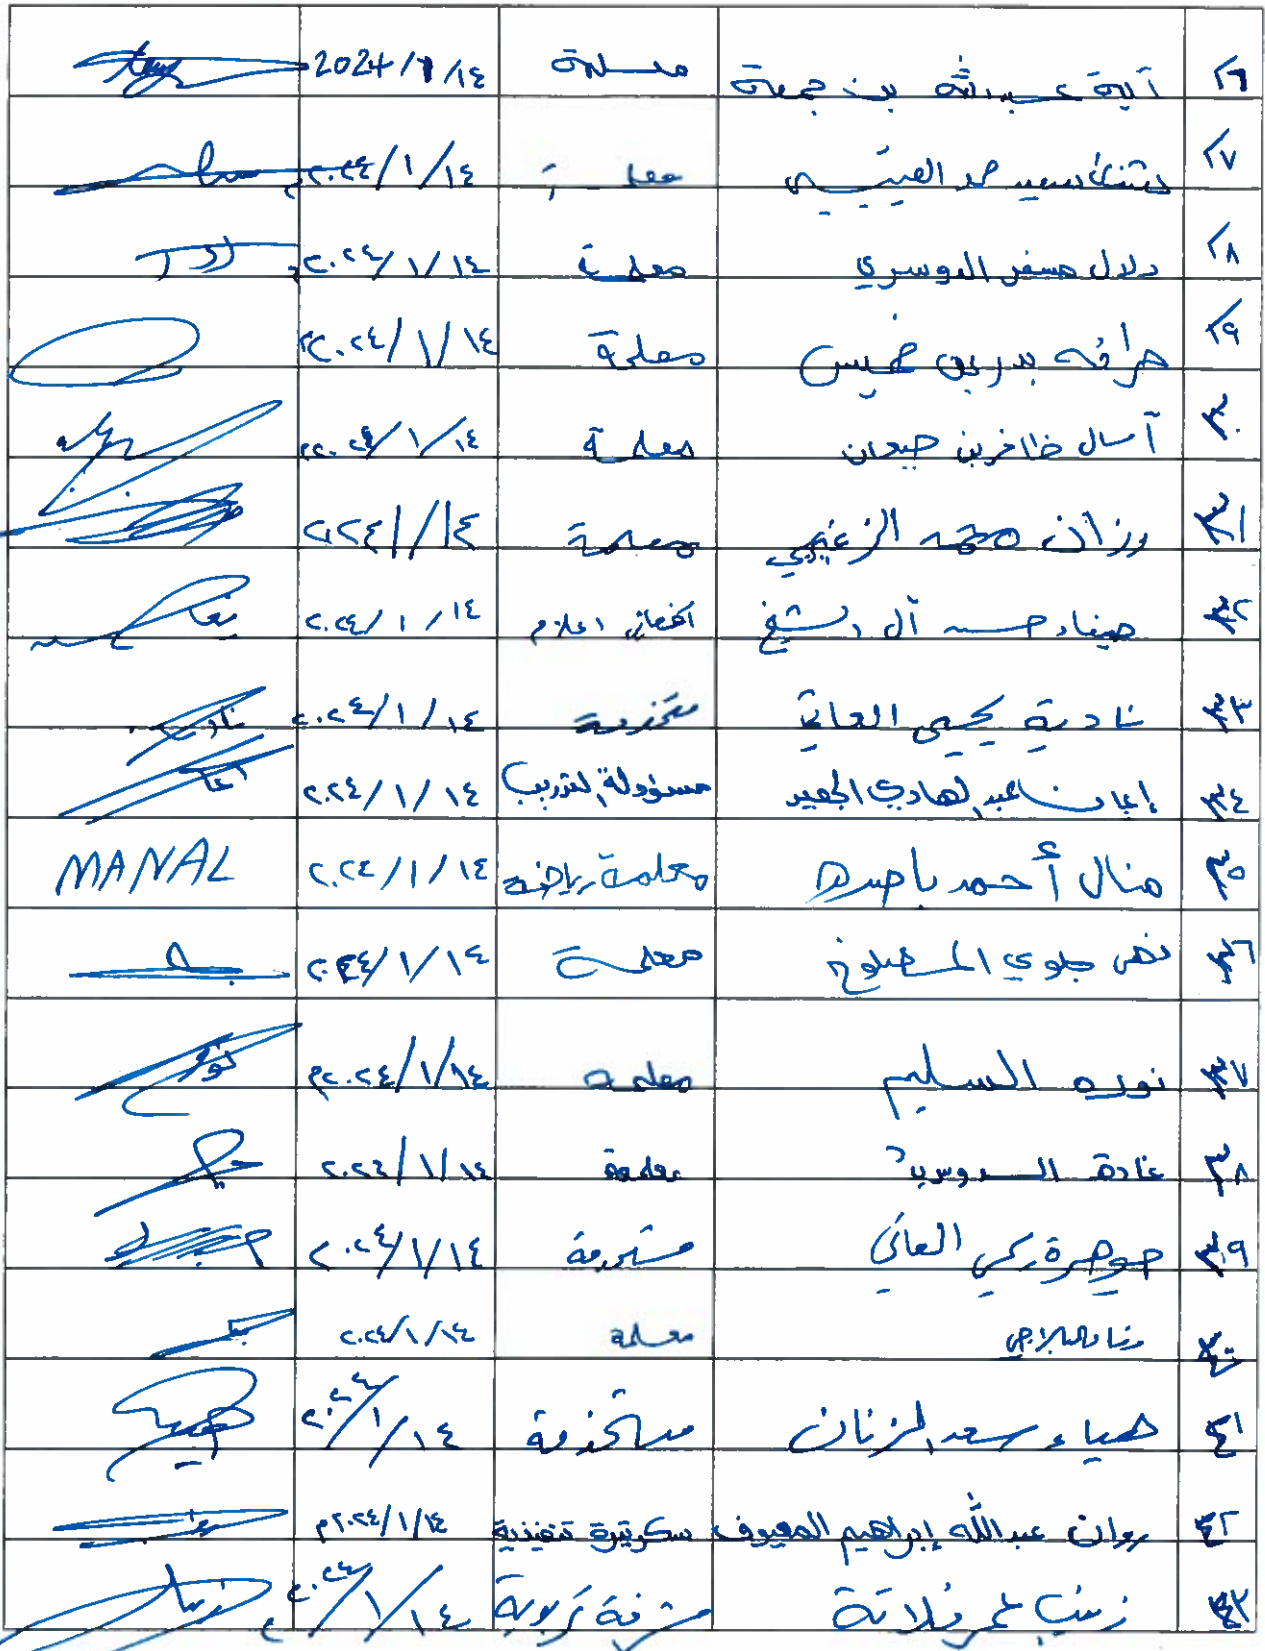 ٢٦ آية عبدالله بن جمعة معلمة 2024/1/١٤
٢٧ سعيد حمد العتيبي معلمة ٢٠٢٤/١/١٤
٢٨ دلال مسفر الدوسري معلمة ٢٠٢٤/١/١٤
٢٩ بدر بن خميس معلمة ٢٠٢٤/١/١٤
٣٠ آسال ظافر بن جبعان معلمة ٢٠٢٤/١/١٤
٣١ رزان محمد الزغيبي معلمة ٢٠٢٤/١/١٤
٣٢ هيفاء حسن آل الشيخ اخصائي اعلام ٢٠٢٤/١/١٤
٣٣ نادية يحيى مستخدمة ٢٠٢٤/١/١٤ نادية
٣٤ إيمان عبدالهادي الجعيد مسؤولة التدريب ٢٠٢٤/١/١٤
٣٥ منال أحمد باصره معلمة رياضه ٢٠٢٤/١/١٤ MANAL
٣٦ جلوي معلمة ٢٠٢٤/١/١٤
٣٧ نوره السليم معلمه ٢٠٢٤/١/١٤م نوره
٣٨ غادة الدوسري معلمة ٢٠٢٤/١/١٤
٣٩ جوهرة مستخدمة ٢٠٢٤/١/١٤
٤٠ معلمة ٢٠٢٤/١/١٤
٤١ هياء سعد الزنان مستخدمة ٢٠٢٤/١/١٤
٤٢ روان عبدالله إبراهيم المعيوف سكرتيرة تنفيذية ٢٠٢٤/١/١٤م
٤٣ زينب عمر فلاتة مشرفة تربوية ٢٠٢٤/١/١٤